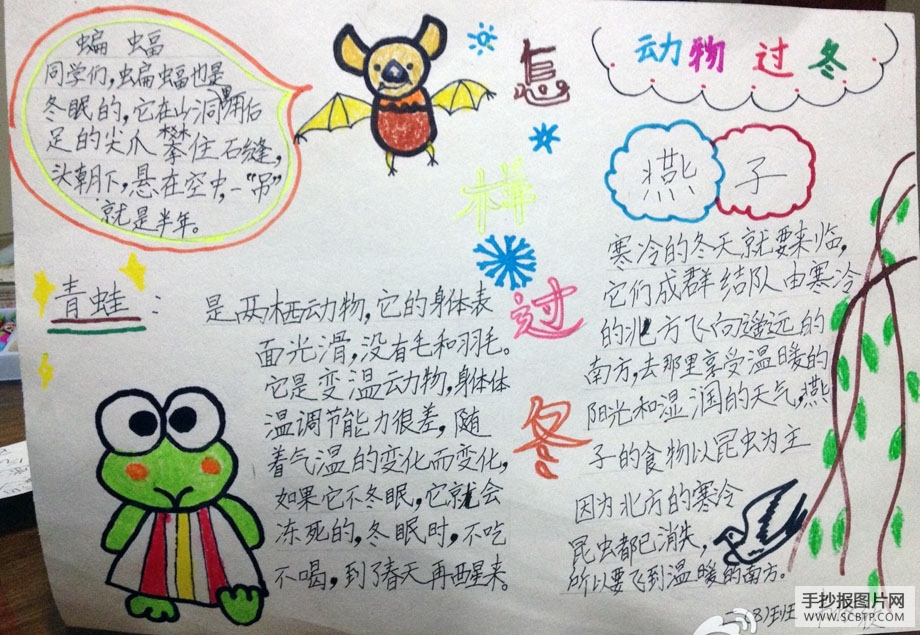 蝙 蝠
同学们,蝙蝠也是
冬眠的,它在山洞里用后
足的尖爪 攀住石缝,
头朝下,悬在空中,一“吊”
就是半年。
怎
样
过
冬
动物过冬
燕子
寒冷的冬天就要来临,
它们成群结队由寒冷
的北方飞向遥远的
南方,去那里享受温暖的
阳光和湿润的天气,燕
子的食物以昆虫为主
因为北方的寒冷
昆虫都已消失,
所以要飞到温暖的南方。
青蛙:
是两栖动物,它的身体表
面光滑,没有毛和羽毛。
它是变温动物,身体体
温调节能力很差,随
着气温的变化而变化,
如果它不冬眠,它就会
冻死的,冬眠时,不吃
不喝,到了春天再醒来。
二(3)班
手抄报图片网
WWW.SCBTP.COM